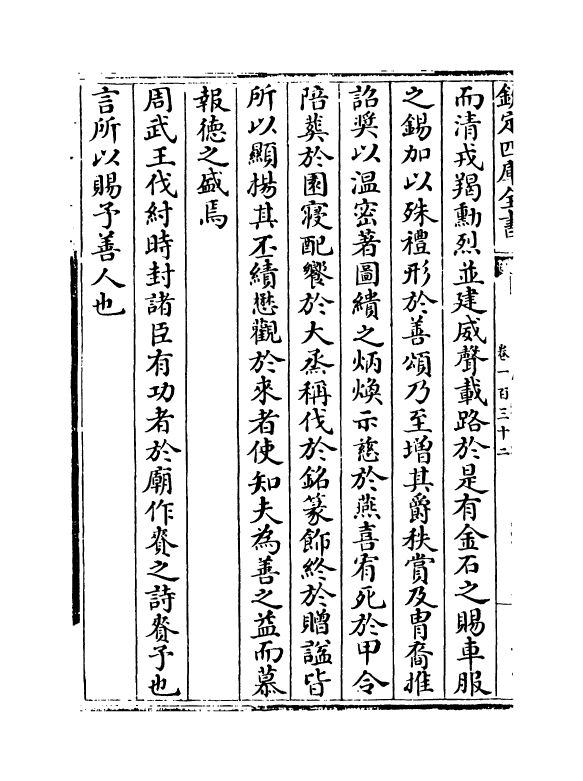 欽定四庫全書
卷一百三十二
而清戎羯勳烈並建威聲載路於是有金石之賜車服
之錫加以殊禮形於善頌乃至增其爵秩賞及胄裔推
詔奬以温密著圖繢之炳煥示慈於燕喜宥死於甲令
陪葬於園寝配饗於大烝稱伐於銘篆飾終於贈諡皆
所以顯揚其丕績懋觀於來者使知夫為善之益而慕
報德之盛焉
周武王伐紂時封諸臣有功者於廟作賚之詩賚予也
言所以賜予善人也